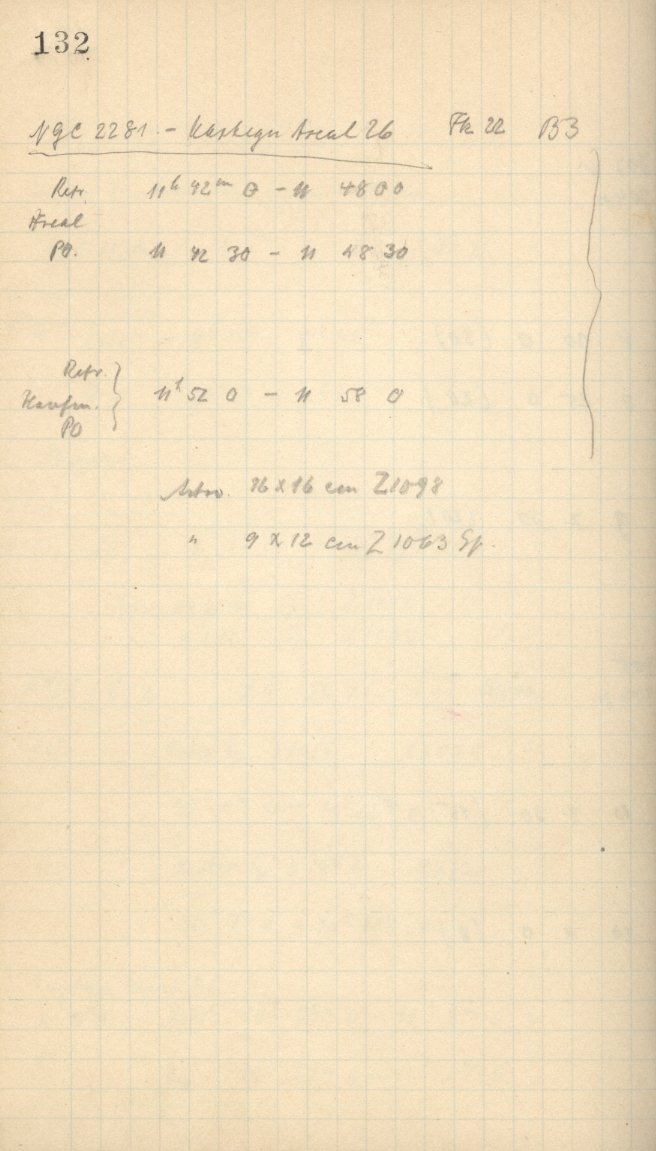 132
NGC 2281 - Kapteyn Areal 26 Fk 22 B3
Refr. 11h 42m 0 - 11 48 0 0
Areal
PO. 11 42 30 - 11 48 30
Refr.
PO
11h 52 0 - 11 58 0
16 x 16 cm Z 1098
" 9 x 12 cm Z 1063